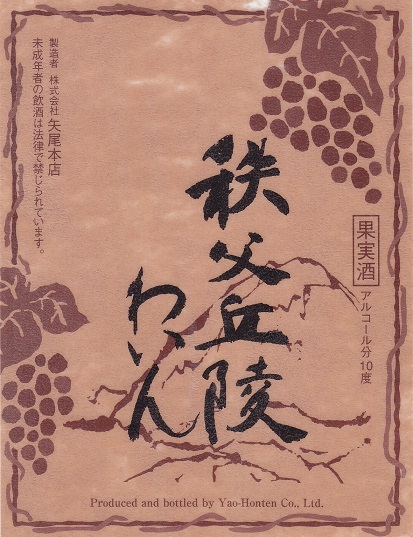 秩父丘陵
わいん
果実酒
アルコール分10度
製造者 株式会社 矢尾本店
未成年者の飲酒は法律で禁じられています。
Produced and bottled by Yao-Honten Co., Ltd.